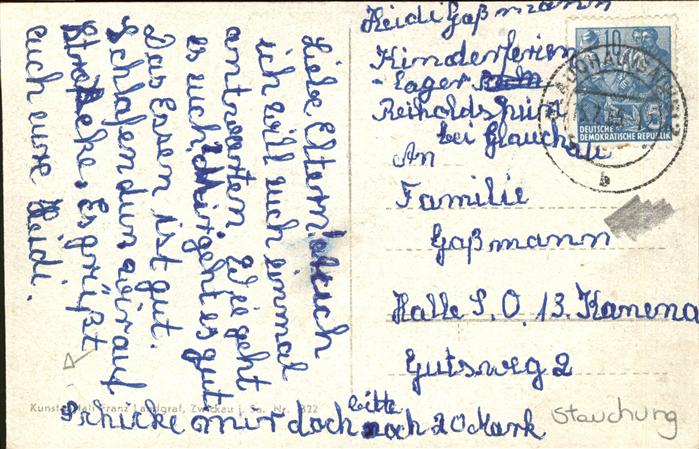 Heidi Gaßmann
Kinderferien
-Lager
Reiholdshain
bei Glauchau
An
Familie
Gaßmann
Halle S. O. 13. Kanena
Gutsweg 2
10
5
DEUTSCHE
DEMOKRATISCHE REPUBLIK
b
Liebe Eltern!
ich will euch einmal
antworten. Wie geht
es euch? Mir geht es gut.
Das Essen ist gut.
Schlafen dun wir auf
Es grüßt
euch eure Heidi.
Schicke mir doch bitte
noch 20 Mark
Kunstverlag Franz Landgraf, Zwickau i. Sa. Nr. 322
Stauchung